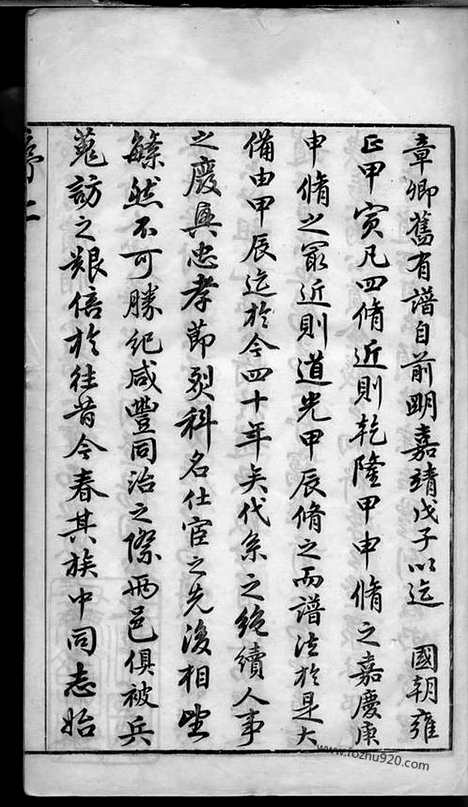 章卿舊有譜自前明嘉靖戊子以迄　國朝雍
正甲寅凡四脩近則乾隆甲申脩之嘉慶庚
申脩之最近則道光甲辰脩之而譜法於是大
備由甲辰迄於今四十年矣代系之絶續人事
之廢興忠孝節烈科名仕宦之先後相望
繇然不可勝紀咸豐同治之際兩邑俱被兵
蒐訪之艱倍於往昔今春其族中同志始
序二
www.fozhu920.com